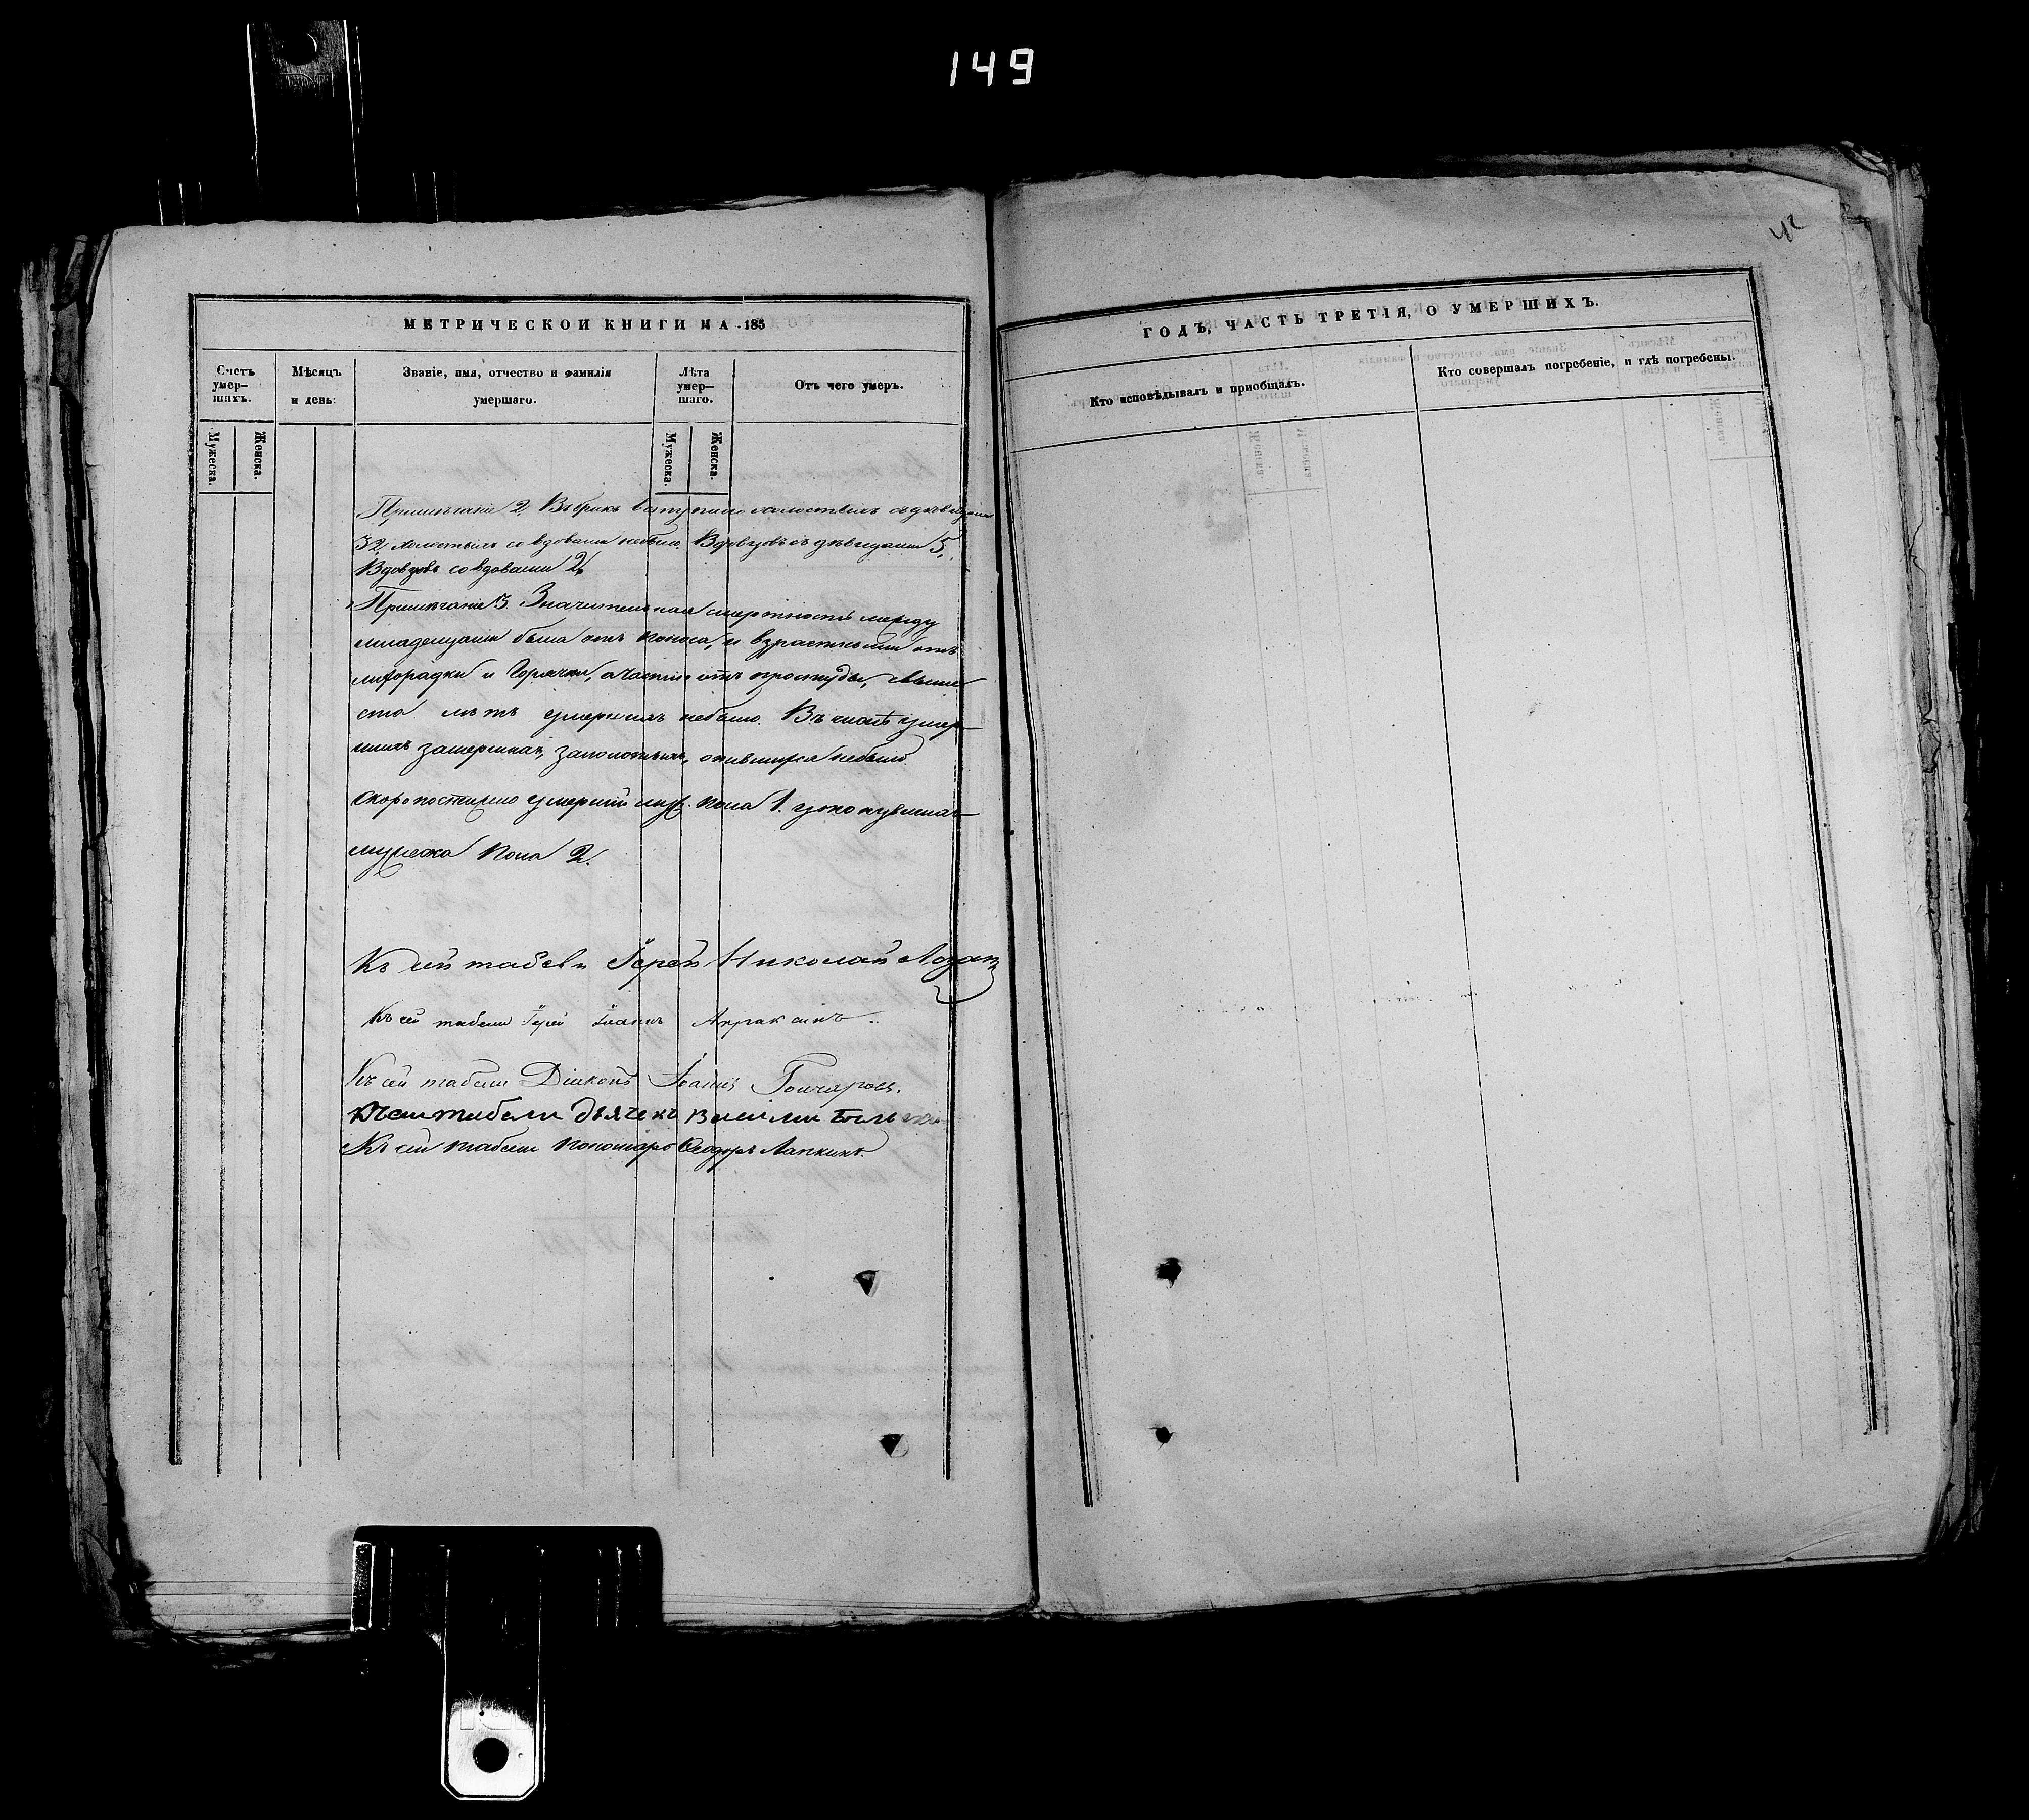 149
42
МЕТРИЧЕСКОЙ КНИГИ НА 185
Счетъ умер-
шихъ.
Мѣсяцъ
и день:
Званіе, имя, отчество и фамилія
умершаго.
Лѣта
умер-
шаго.
Отъ чего умеръ.
Мужеска.
Женска.
Мужеска.
Женска.
Примѣчаніе 2. Въ бракъ вступило холостыхъ съ дѣвицами
32, холостыхъ со вдовами небыло. Вдовцовъ съ дѣвицами 5.
Вдовцовъ со вдовами 2.
Примѣчаніе 3. Значительная смертность между
младенцами была отъ поноса, и взрастными отъ
лихорадки и горячки, а частію отъ простуды, свыше
ста лѣтъ умершихъ небыло. Въ числѣ умер
шихъ замерзшихъ, опившихся небыло
Скоропостижно умершій муж. пола 1. утонувшихъ
мужеска пола 2.
Къ сей табели Іерей Николай
Къ сей табели Іерей Іоаннъ Апраксинъ
Къ сей табели Діаконъ Іоаннъ Гончаровъ.
Къ сей табели дьячекъ Василій
Къ сей табели пономарь Ѳеодоръ Лапкинъ.
ГОДЪ, ЧАСТЬ ТРЕТІЯ, О УМЕРШИХЪ.
Кто исповѣдывалъ и пріобщалъ.
Кто совершалъ погребеніе, и гдѣ погребены.